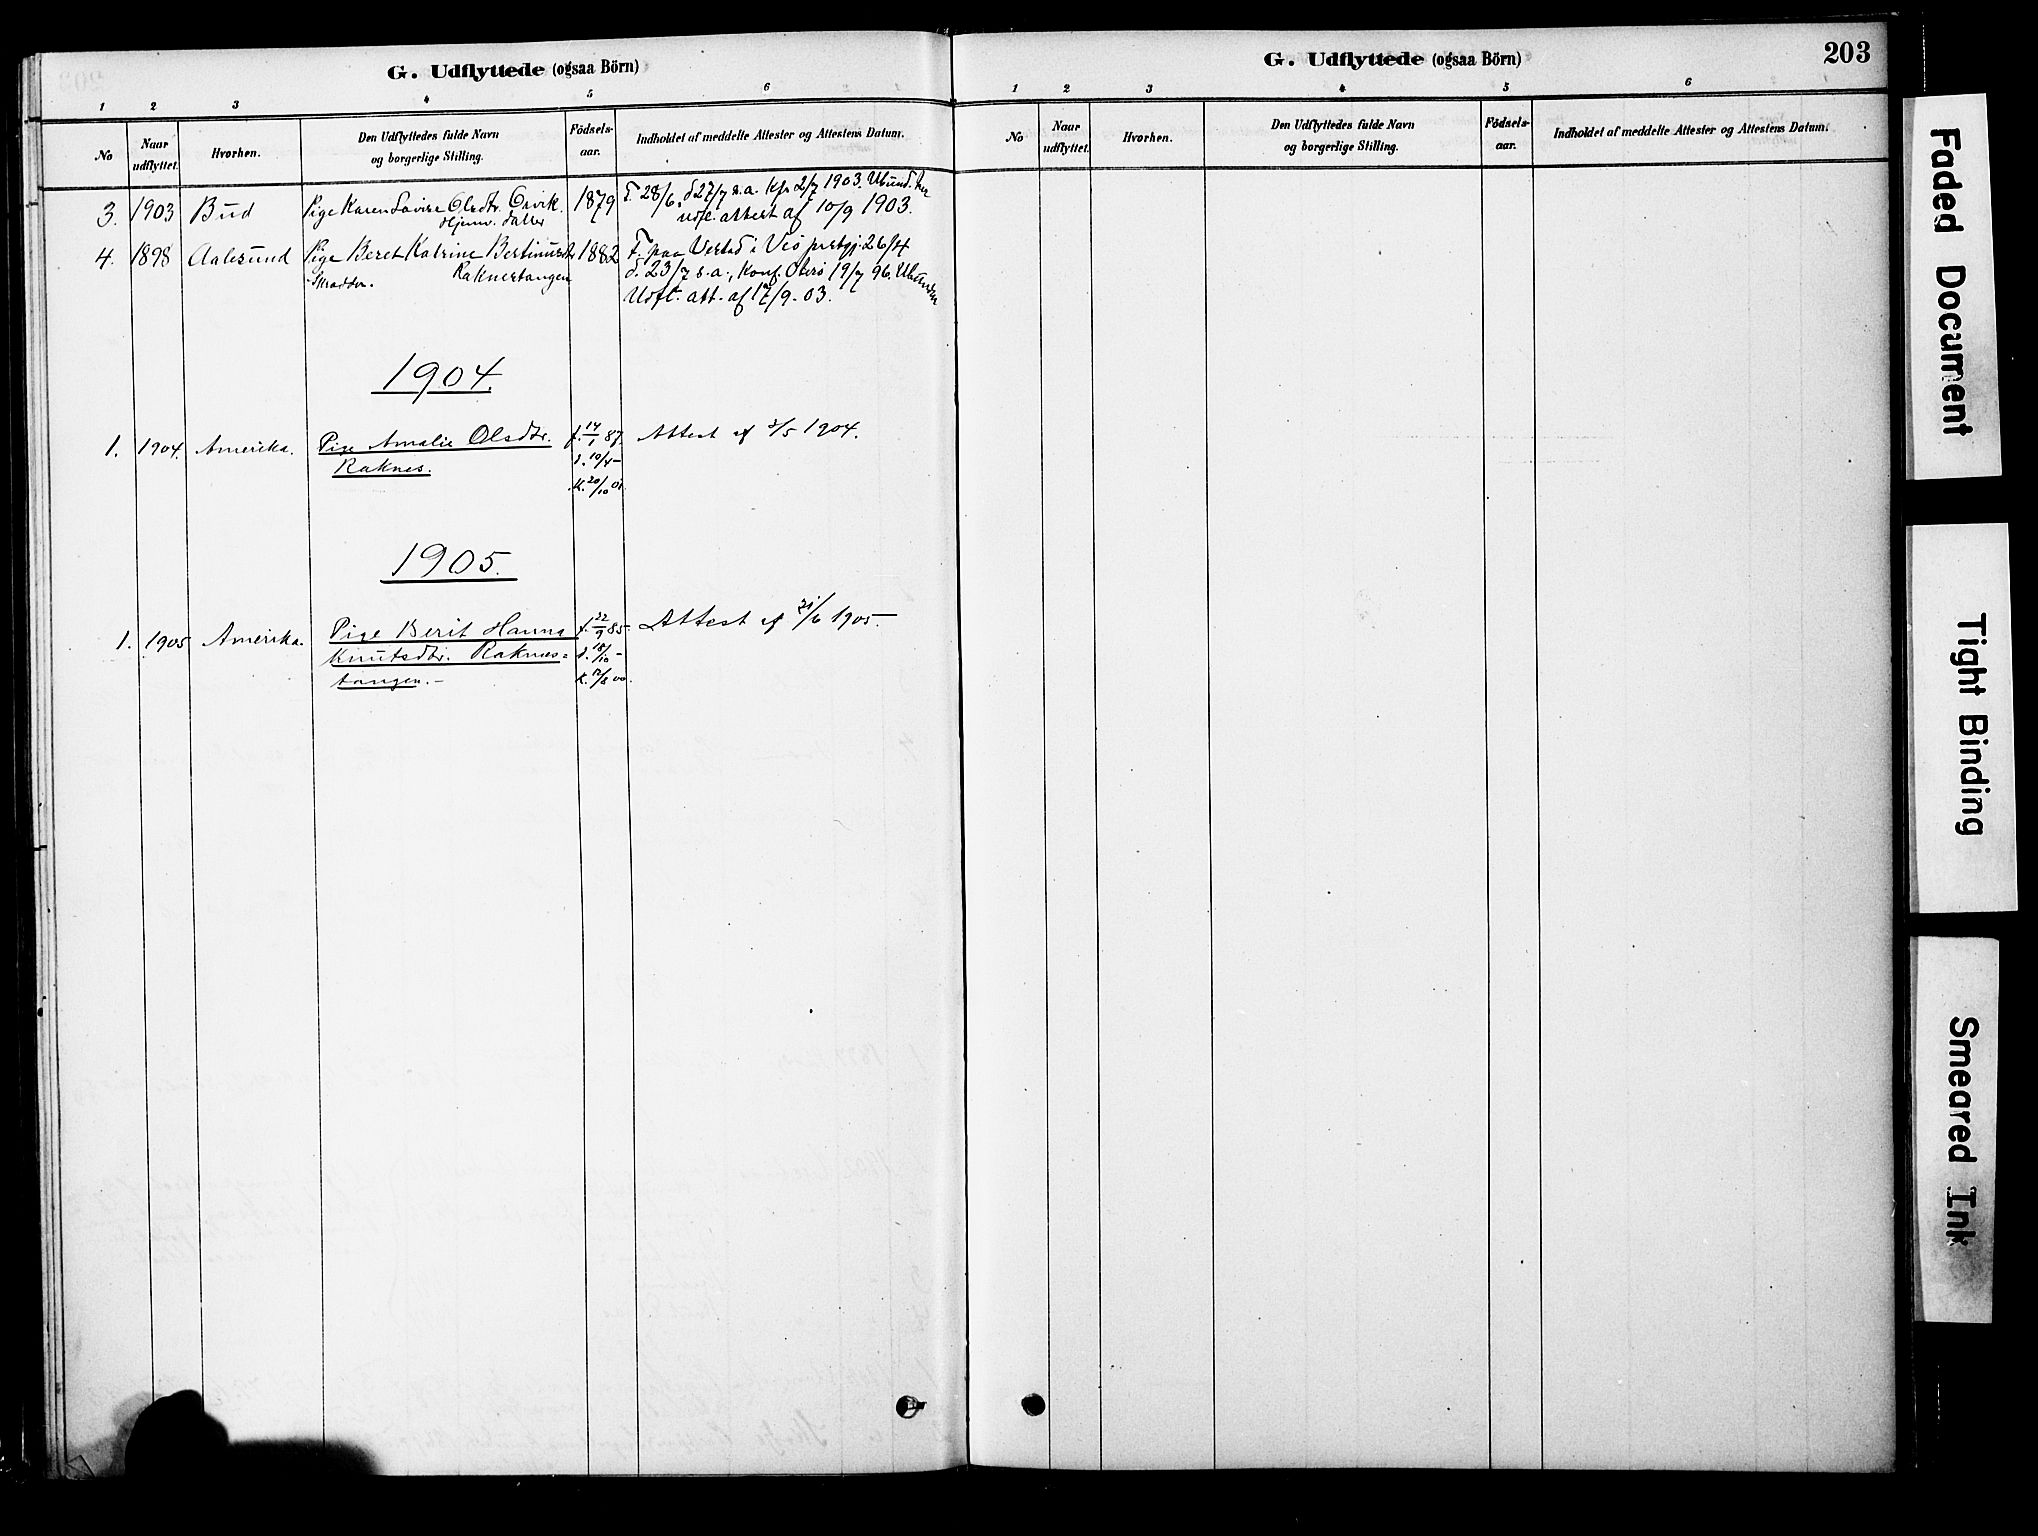 G. Udflyttede (ogsaa Börn)
1 2 3 4 5 6
No
Naar udflyttet.
Hvorhen.
Den Udflyttedes fulde Navn
og borgerlige Stilling.
Födsels-
aar.
Indholdet af meddelte Attester og Attestens Datum.
3. 1903 Bud Pige Karen Lovise Olsdtr. Orvik. 1879 F. 28/6. d 27/7 s.a. Kfr 2/7 1903. Ubund. her
udfl. attest af 10/9 1903.
4. 1898 Aalesund Pige Beret Katrine 1882 F. paa i Veö prstgj. 26/4
Raknestangen d. 23/7 s.a., Konf. 19/7 96.
Udfl. att. af 17/9-03.
1904.
1. 1904. Amerika. Pige Amalie Olsdtr. f. 14/1 87. Attest af 2/5 1904.
Raknes. d. 10/4 -
K. 20/10 01.
1905.
1. 1905 Amerika. Pige Berit Hanna f. 22/9 85. Attest af 21/6 1905-
Knutsdtr. Raknes= d. 18/10 -
tangen.- K. 12/8 00.
G. Udflyttede (ogsaa Börn)
203
1 2 3 4 5 6
No
Naar udflyttet.
Hvorhen.
Den Udflyttedes fulde Navn
og borgerlige Stilling.
Födsels-
aar.
Indholdet af meddelte Attester og Attestens Datum.
Faded Document
Tight Binding
Smeared Ink